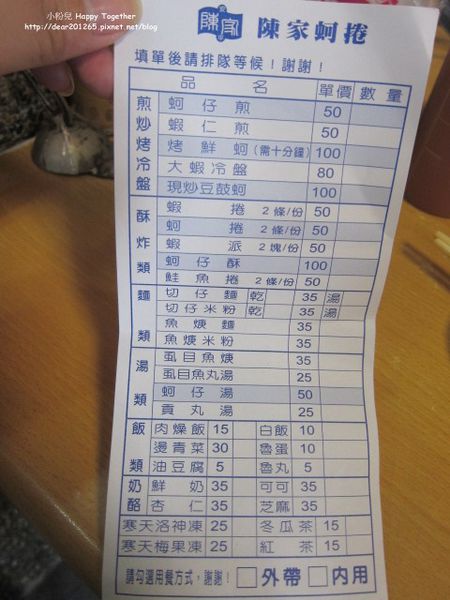 小粉兒 Happy Together
http://dear201265.pixnet.net/blog
陳家 陳家蚵捲
填單後請排隊等候！謝謝！
品名 單價 數量
煎炒烤冷盤
蚵仔煎 50
蝦仁煎 50
烤鮮蚵(需十分鐘) 100
大蝦冷盤 80
現炒豆鼓蚵 100
酥炸類
蝦捲 2條/份 50
蚵捲 2條/份 50
蝦派 2塊/份 50
蚵仔酥 100
鮭魚捲 2條/份 50
麵類
切仔麵 乾 35 湯
切仔米粉 乾 35 湯
魚焿麵 35
魚焿米粉 35
湯類
虱目魚焿 35
虱目魚丸湯 25
蚵仔湯 50
貢丸湯 25
飯類
肉燥飯 15 白飯 10
燙青菜 30 魯蛋 10
油豆腐 5 魯丸 5
奶酪
鮮奶 35 可可 35
杏仁 35 芝麻 35
寒天洛神凍 25 冬瓜茶 15
寒天梅果凍 25 紅茶 15
請勾選用餐方式，謝謝！ □外帶 □內用